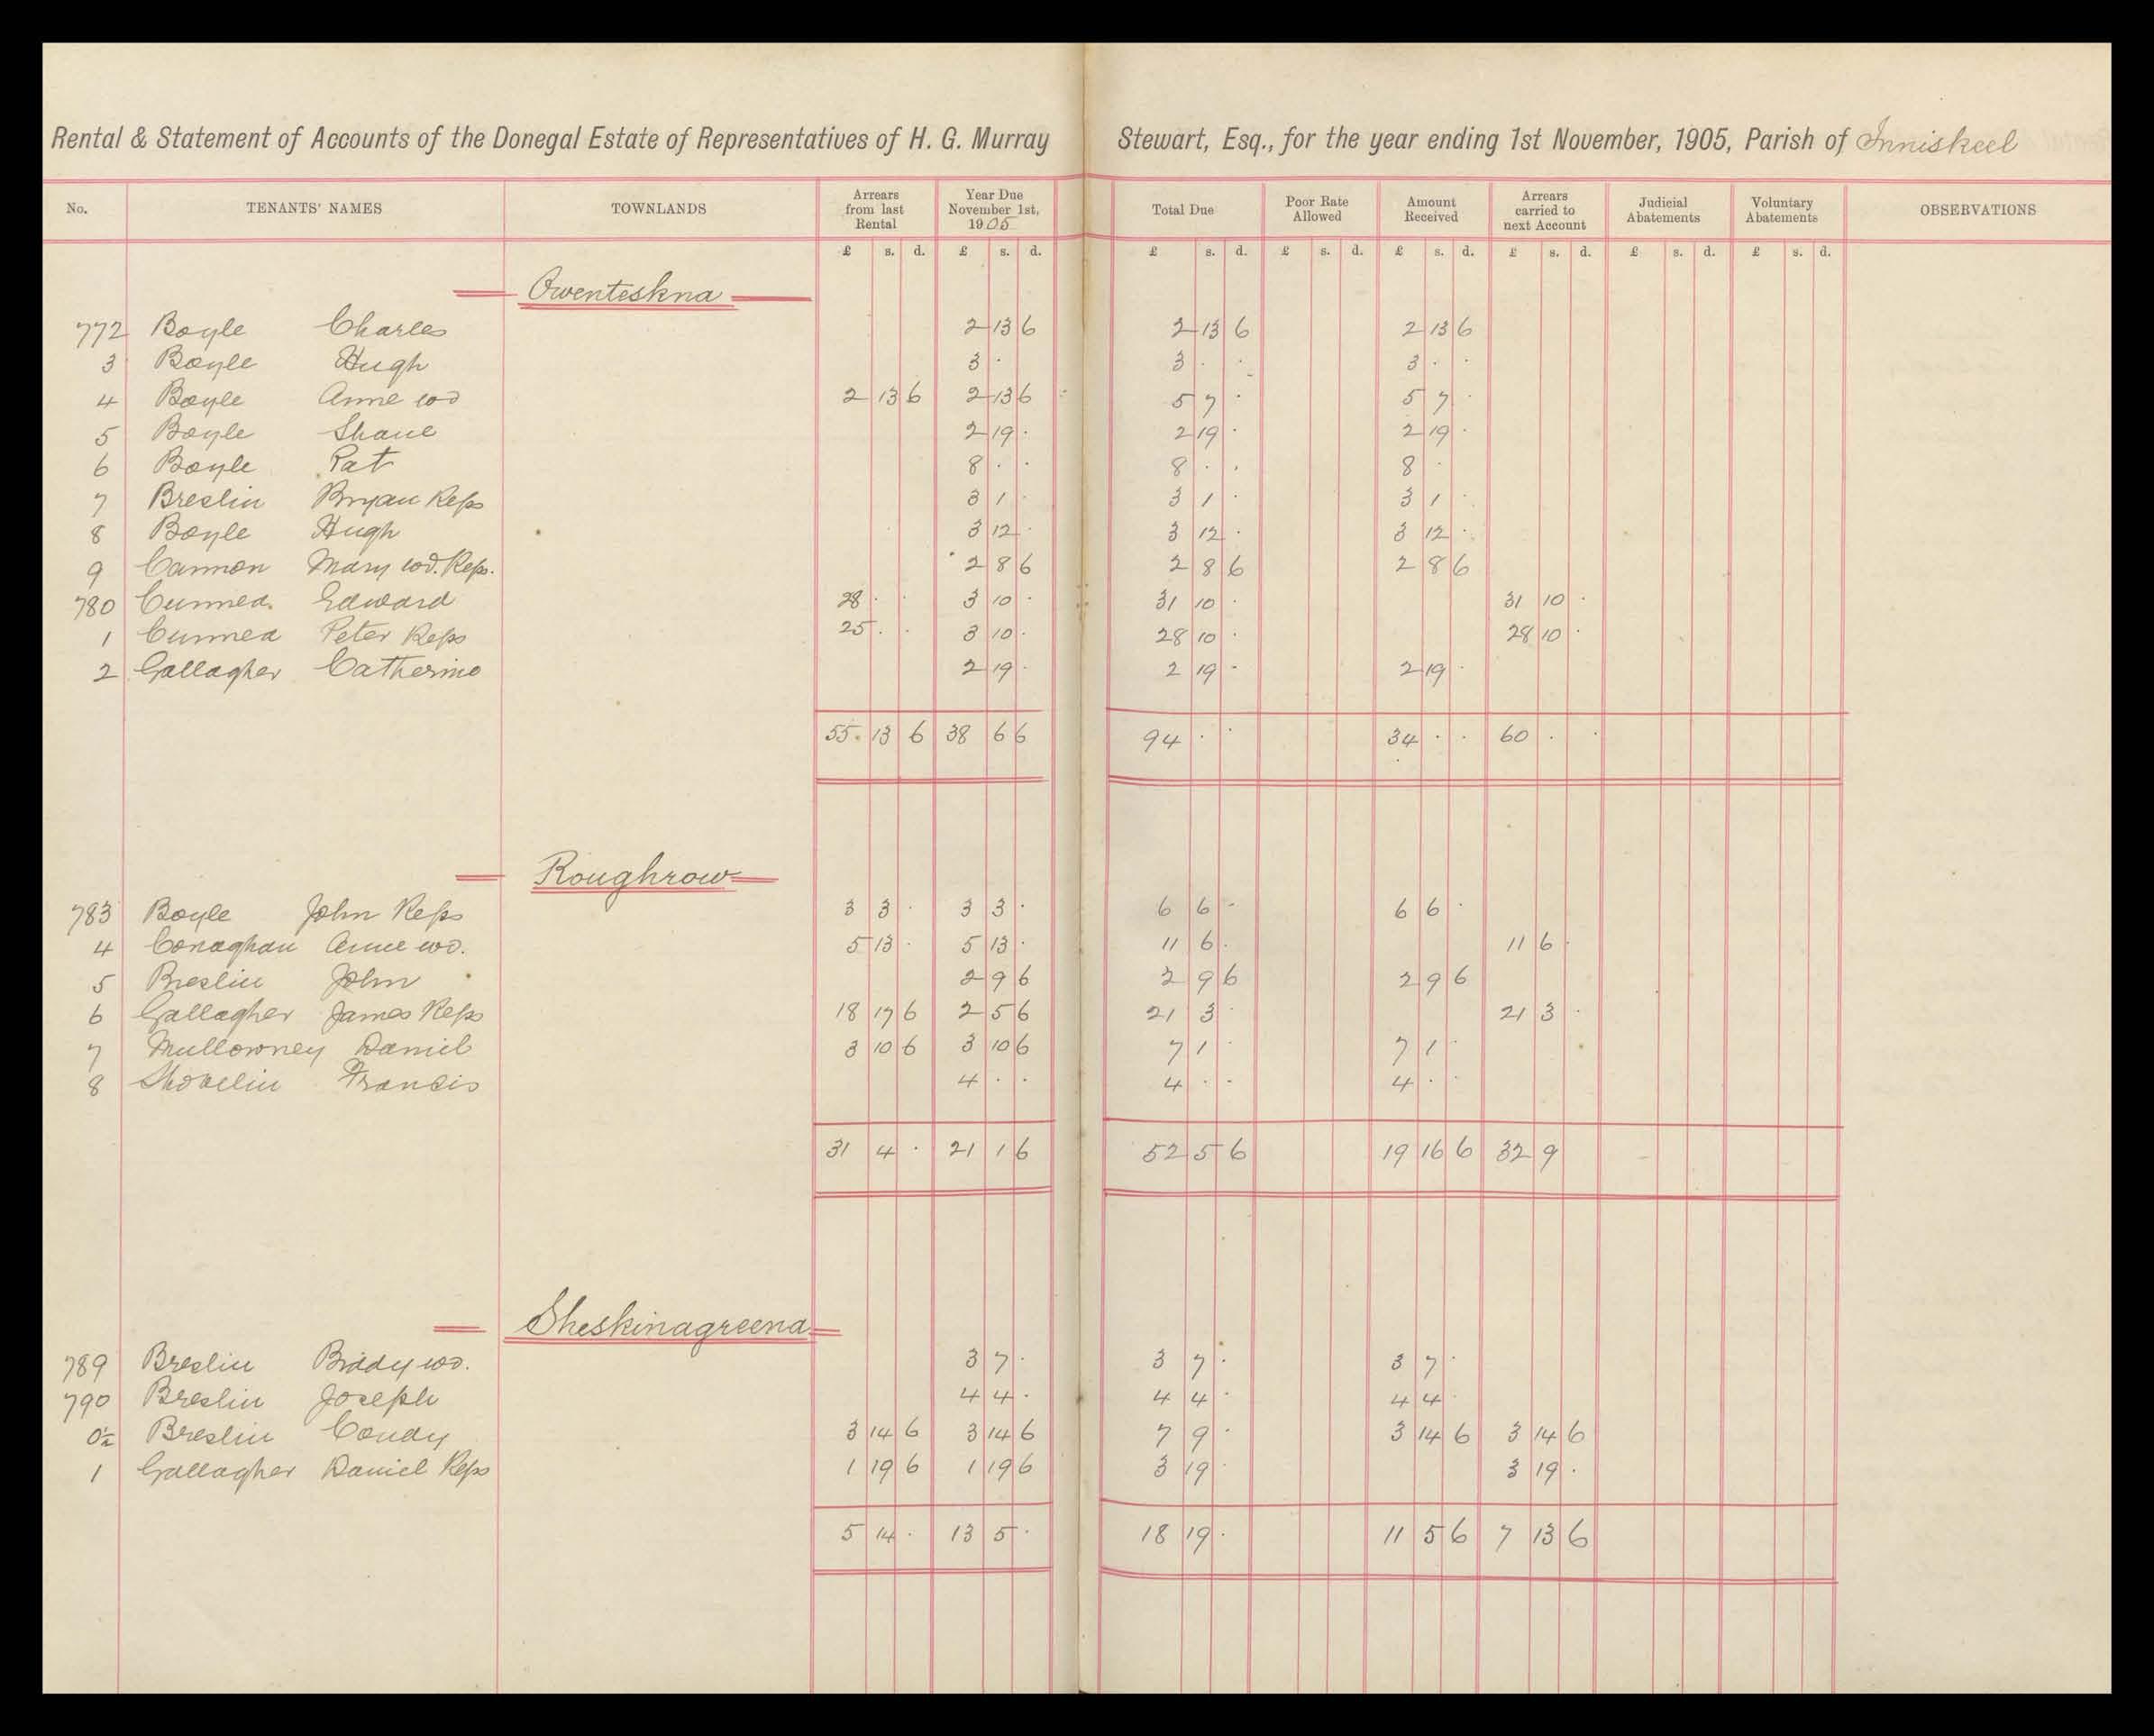 Rental & Statement of Accounts of the Donegal Estate of Representatives of H. G. Murray Stewart, Esq., for the year ending 1st November, 1905, Parish of Inniskeel
No. TENANTS' NAMES TOWNLANDS Arrears from last Rental Year Due November 1st, 1905 Total Due Poor Rate Allowed Amount Received Arrears carried to next Account Judicial Abatements Voluntary Abatements OBSERVATIONS
£ s. d. £ s. d. £ s. d. £ s. d. £ s. d. £ s. d. £ s. d. £ s. d.
Owenteskna
772 Boyle Charles 2 13 6 2 13 6 2 13 6
3 Boyle Hugh 3 · 3 · · 3 · ·
4 Boyle Anne wd 2 13 6 2 13 6 5 7 · 5 7 ·
5 Boyle Shane 2 19 · 2 19 · 2 19 ·
6 Boyle Pat 8 · · 8 · · 8 ·
7 Breslin Bryan Reps 3 1 · 3 1 · 3 1 ·
8 Boyle Hugh 3 12 · 3 12 · 3 12 ·
9 Cannon Mary wd. Reps. 2 8 6 2 8 6 2 8 6
780 Cunnea Edward 28 · · 3 10 · 31 10 · 31 10 ·
1 Cunnea Peter Reps 25 · · 3 10 · 28 10 · 28 10 ·
2 Gallagher Catherine 2 19 · 2 19 · 2 19 ·
55 13 6 38 6 6 94 · · 34 · · 60 · ·
Roughrow
783 Boyle John Reps 3 3 · 3 3 · 6 6 · 6 6 ·
4 Conaghan Anne wd. 5 13 · 5 13 · 11 6 · 11 6 ·
5 Breslin John 2 9 6 2 9 6 2 9 6
6 Gallagher James Reps 18 17 6 2 5 6 21 3 · 21 3 ·
7 Mullowney Daniel 3 10 6 3 10 6 7 1 · 7 1 ·
8 Shovelin Francis 4 · · 4 · · 4 · ·
31 4 · 21 1 6 52 5 6 19 16 6 32 9
Sheskinagreena
789 Breslin Biddy wd. 3 7 · 3 7 · 3 7 ·
790 Breslin Joseph 4 4 · 4 4 · 4 4 ·
0½ Breslin Condy 3 14 6 3 14 6 7 9 · 3 14 6 3 14 6
1 Gallagher Daniel Reps 1 19 6 1 19 6 3 19 · 3 19 ·
5 14 · 13 5 · 18 19 · 11 5 6 7 13 6